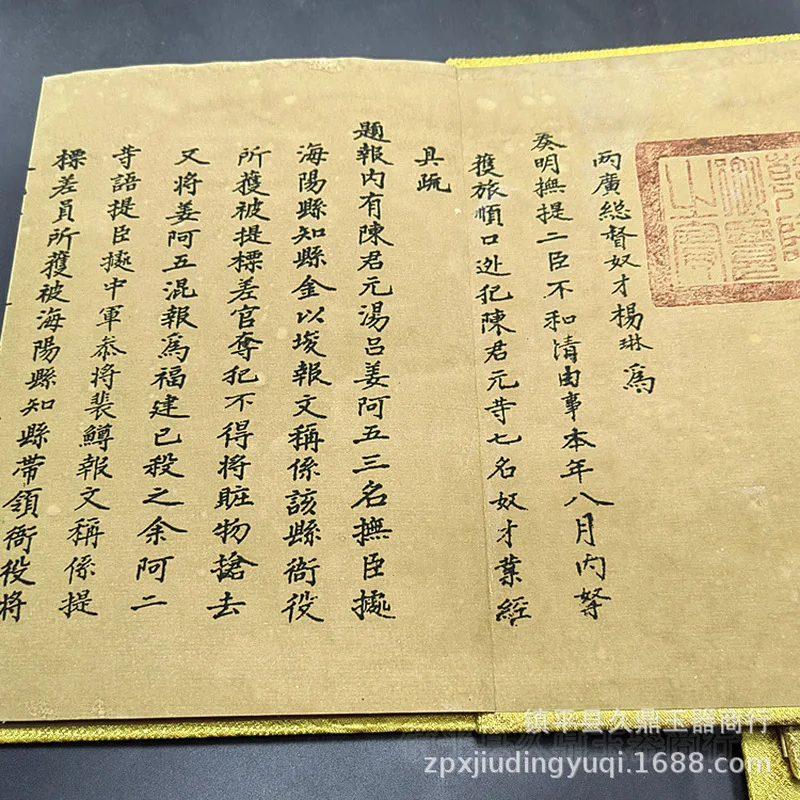 兩廣総督奴才楊琳爲
奏明撫提二臣不和情由事本年八月内拏
獲旅順口逃犯陳君元等七名奴才業經
具疏
題報内有陳君元湯吕姜阿五三名撫臣據
海陽縣知縣金以埈報文稱係該縣衙役
所獲被提標差官奪犯不得將賍物搶去
又將姜阿五混報爲福建已殺之余阿二
等語提臣據中軍叅將裴鱒報文稱係提
標差員所獲被海陽縣知縣帶領衙役將
镇平县久鼎玉器商行
zpxjiudingyuqi.1688.com